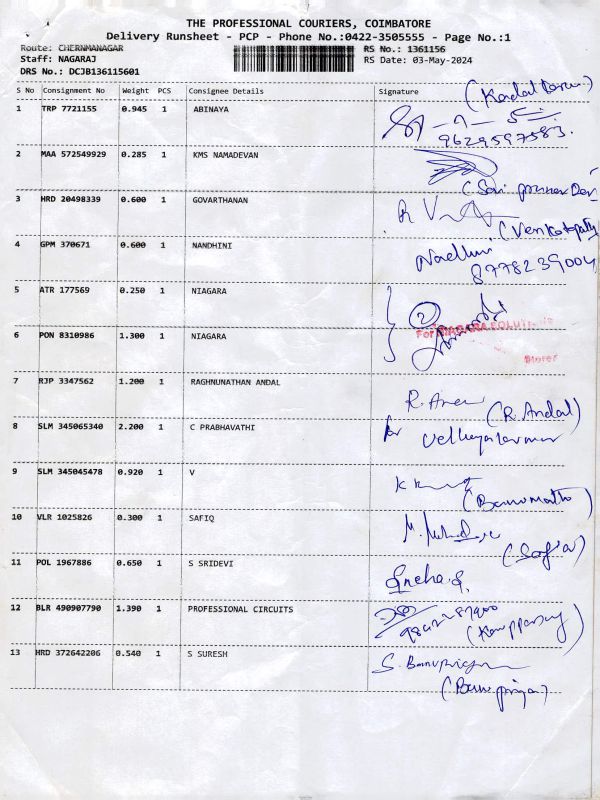 THE PROFESSIONAL COURIERS, COIMBATORE
Delivery Runsheet - PCP - Phone No.:0422-3505555 - Page No.:1
Route: CHERNMANAGAR RS No.: 1361156
Staff: NAGARAJ RS Date: 03-May-2024
DRS No.: DCJB136115601
S No Consignment No Weight PCS Consignee Details Signature
1 TRP 7721155 0.945 1 ABINAYA
9629597583.
2 MAA 572549929 0.285 1 KMS NAMADEVAN
3 HRD 20498339 0.600 1 GOVARTHANAN
4 GPM 370671 0.600 1 NANDHINI
8778239004
5 ATR 177569 0.250 1 NIAGARA
2
6 PON 8310986 1.300 1 NIAGARA
For NIAGARA SOLUTIONS
7 RJP 3347562 1.200 1 RAGHNUNATHAN ANDAL
(R. Andal)
8 SLM 345065340 2.200 1 C PRABHAVATHI
for
9 SLM 345045478 0.920 1 V
(Banumathi)
10 VLR 1025826 0.300 1 SAFIQ
11 POL 1967886 0.650 1 S SRIDEVI
Sneha.S.
12 BLR 490907790 1.390 1 PROFESSIONAL CIRCUITS
(Karuppasamy)
13 HRD 372642206 0.540 1 S SURESH
S. Banupriya
(Banu priya)